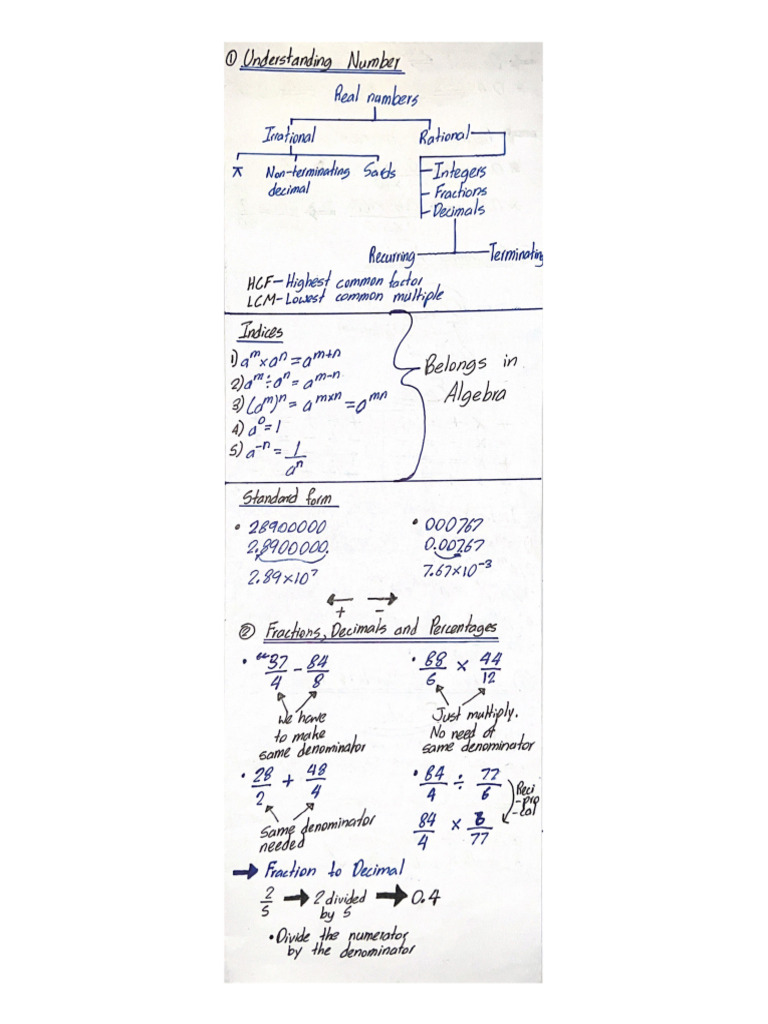 ① Understanding Number
Real numbers
Irrational
Rational
π Non-terminating decimal Surds
Integers
Fractions
Decimals
Recurring Terminating
HCF - Highest common factor
LCM - Lowest common multiple
Indices
1) a^m × a^n = a^m+n
2) a^m ÷ a^n = a^m-n
3) (a^m)^n = a^m×n = a^mn
4) a^0 = 1
5) a^-n = 1/a^n
Belongs in
Algebra
Standard form
• 28900000 • 000767
2.8900000. 0.00767
2.89×10^7 7.67×10^-3
+ -
② Fractions, Decimals and Percentages
• 37/4 - 84/8 • 88/6 × 44/12
We have
to make
same denominator
Just multiply.
No need of
same denominator
• 28/2 + 48/4 • 84/4 ÷ 77/6
Reci
-pro
-cal
84/4 × 6/77
Same denominator
needed
→ Fraction to Decimal
2/5 → 2 divided by 5 → 0.4
• Divide the numerator
by the denominator